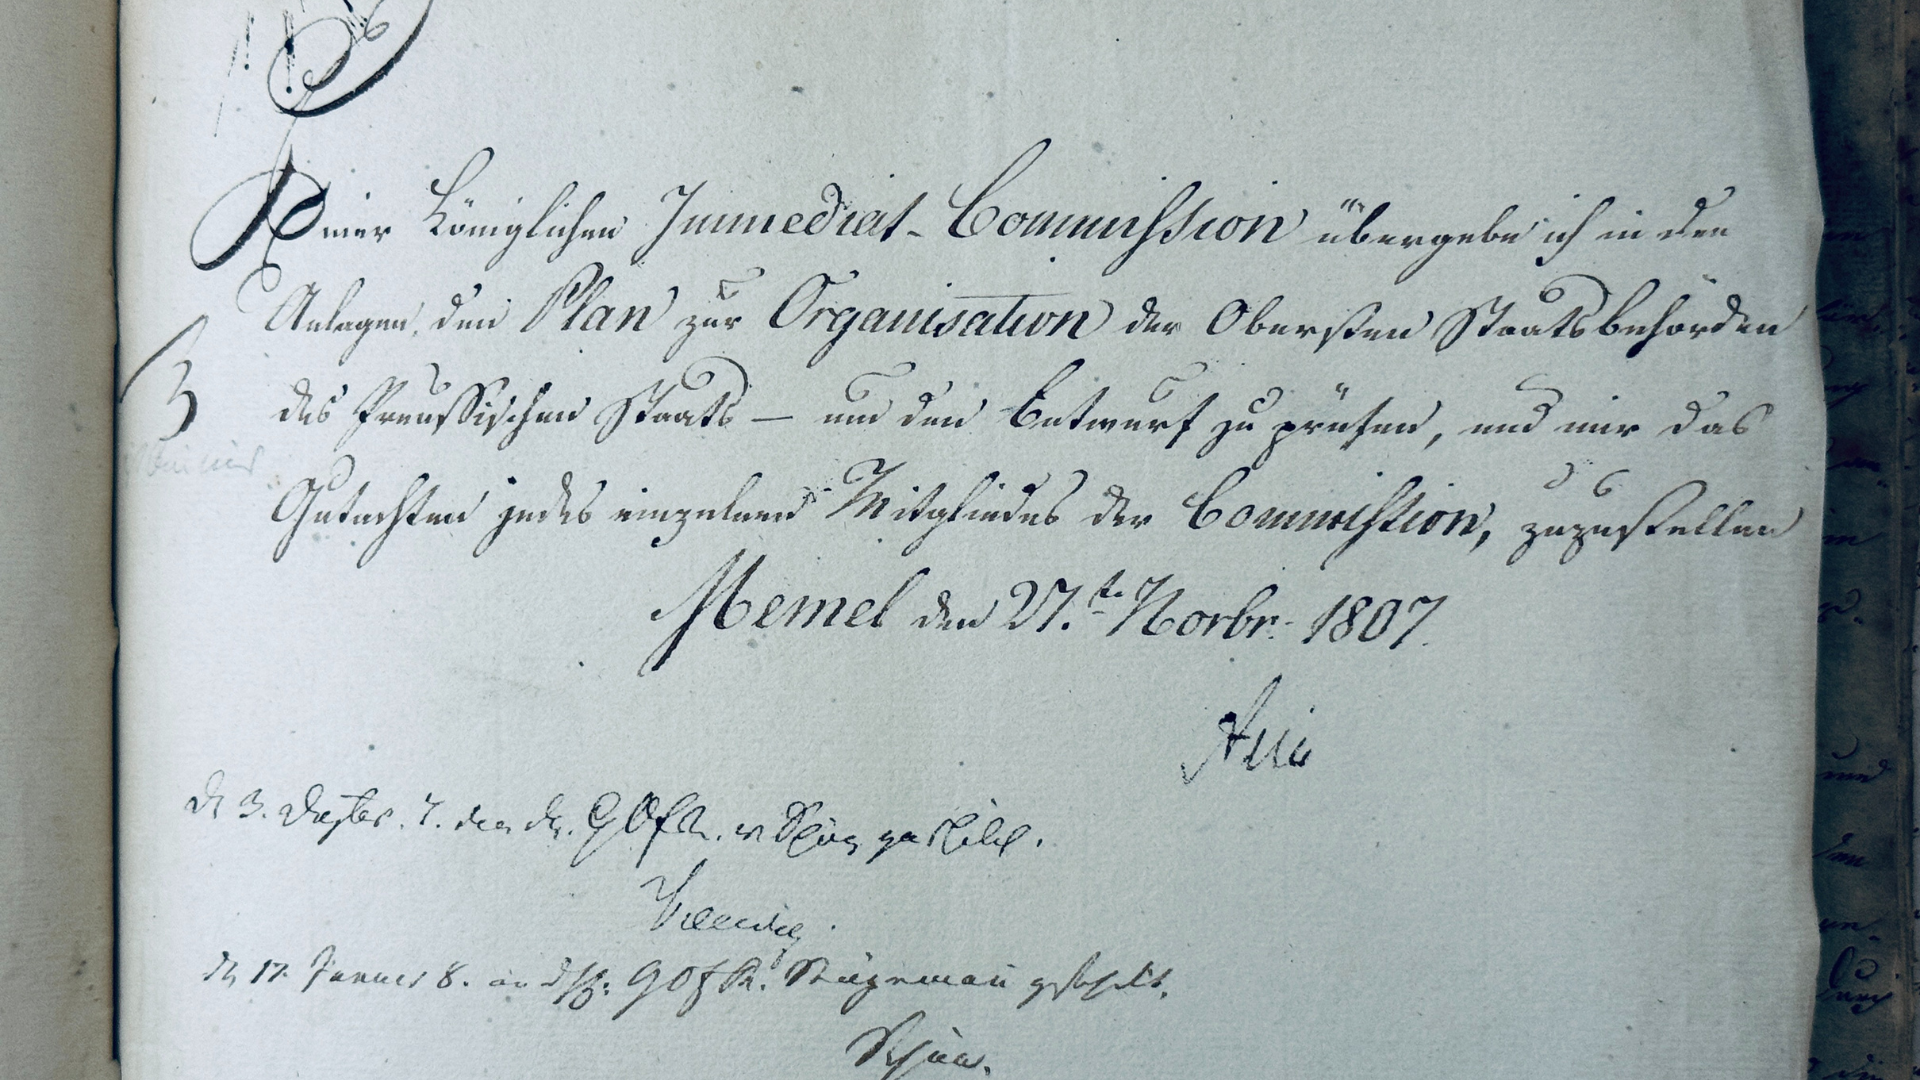 Einer Königlichen Immediat-Commission übergebe ich in den
Anlagen, den Plan zur Organisation der Obersten Staatsbehörden
des Preussischen Staats — um den Entwurf zu prüfen, und mir das
Gutachten jedes einzelnen Mitgliedes der Commission, zuzustellen
Memel den 27.ten Novbr. 1807.
Stein
d 3. Dezbr. 7. dem H. G O f R. v Schön
d 17. Januar 8. an H. G O f R. Stägemann geschickt.
Schön.